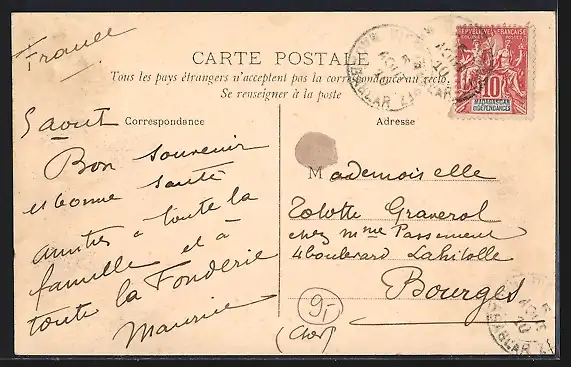 France
CARTE POSTALE
Tous les pays étrangers n'acceptent pas la correspondance au recto.
Se renseigner à la poste
RÉPUBLIQUE FRANÇAISE
COLONIES POSTES
10
MADAGASCAR
et DÉPENDANCES
5 aout
Correspondance
Bon souvenir
et bonne santé
amitiés à toute la
famille et à
toute la Fonderie
Maurice
Adresse
Mademoiselle
Graverol
chez Mme Passement
4 boulevard Lahitolle
Bourges
(Cher)
9,-